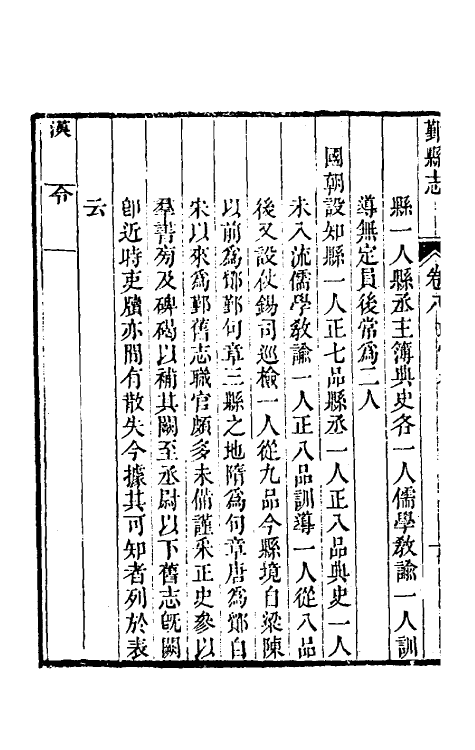 鄞縣志
卷八
縣一人縣丞主簿典史各一人儒學教諭一人訓
導無定員後常爲二人
國朝設知縣一人正七品縣丞一人正八品典史一人
未入流儒學教諭一人正八品訓導一人從八品
後又設仗錫司巡檢一人從九品今縣境自梁陳
以前爲鄮鄞句章三縣之地隋爲句章唐爲鄮自
宋以來爲鄞舊志職官頗多未備謹采正史參以
羣書菊及碑碣以補其闕至丞尉以下舊志旣闕
卽近時吏牘亦間有散失今據其可知者列於表
云
漢
令